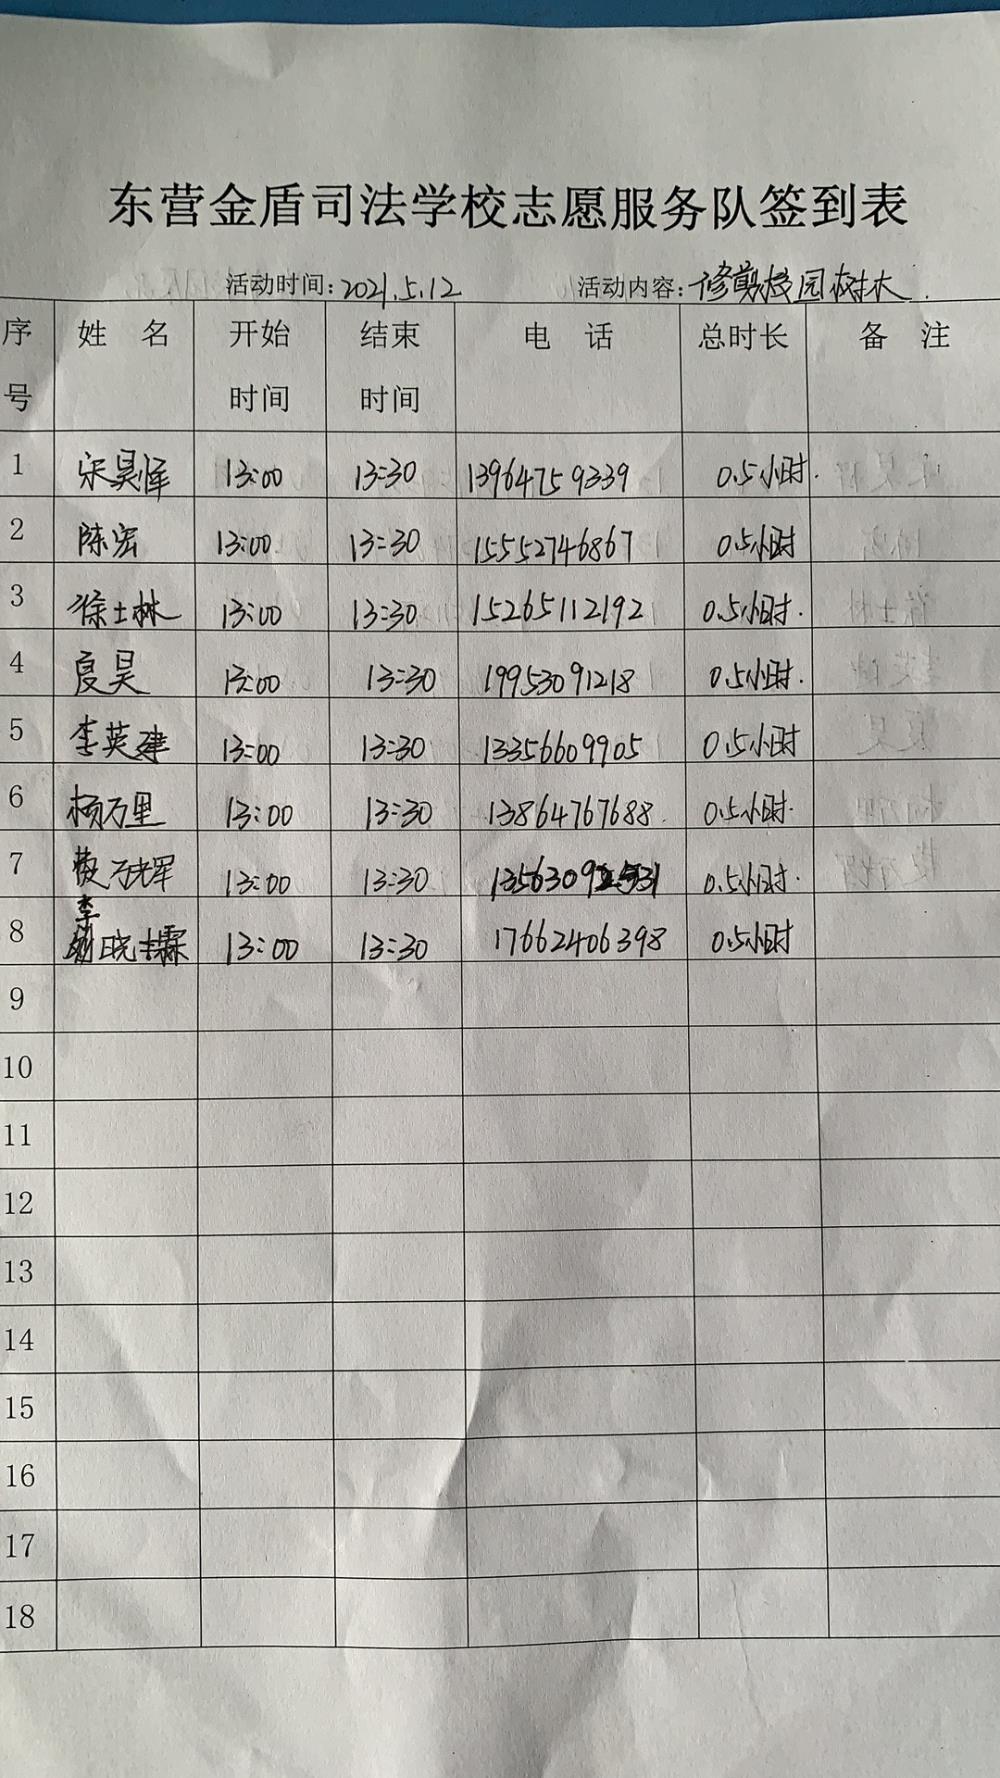 东营金盾司法学校志愿服务队签到表
活动时间:2021.5.12 活动内容:修剪校园树木.
序号 姓 名 开始时间 结束时间 电 话 总时长 备 注
1 宋昊泽 13:00 13:30 13964759339 0.5小时.
2 陈宏 13:00 13:30 15552746867 0.5小时
3 徐士林 13:00 13:30 15265112192 0.5小时.
4 夏昊 13:00 13:30 19953091218 0.5小时.
5 李英建 13:00 13:30 13356609905 0.5小时
6 杨万里 13:00 13:30 13864767688 0.5小时.
7 13:00 13:30 0.5小时.
8 李 13:00 13:30 17662406398 0.5小时
9
10
11
12
13
14
15
16
17
18